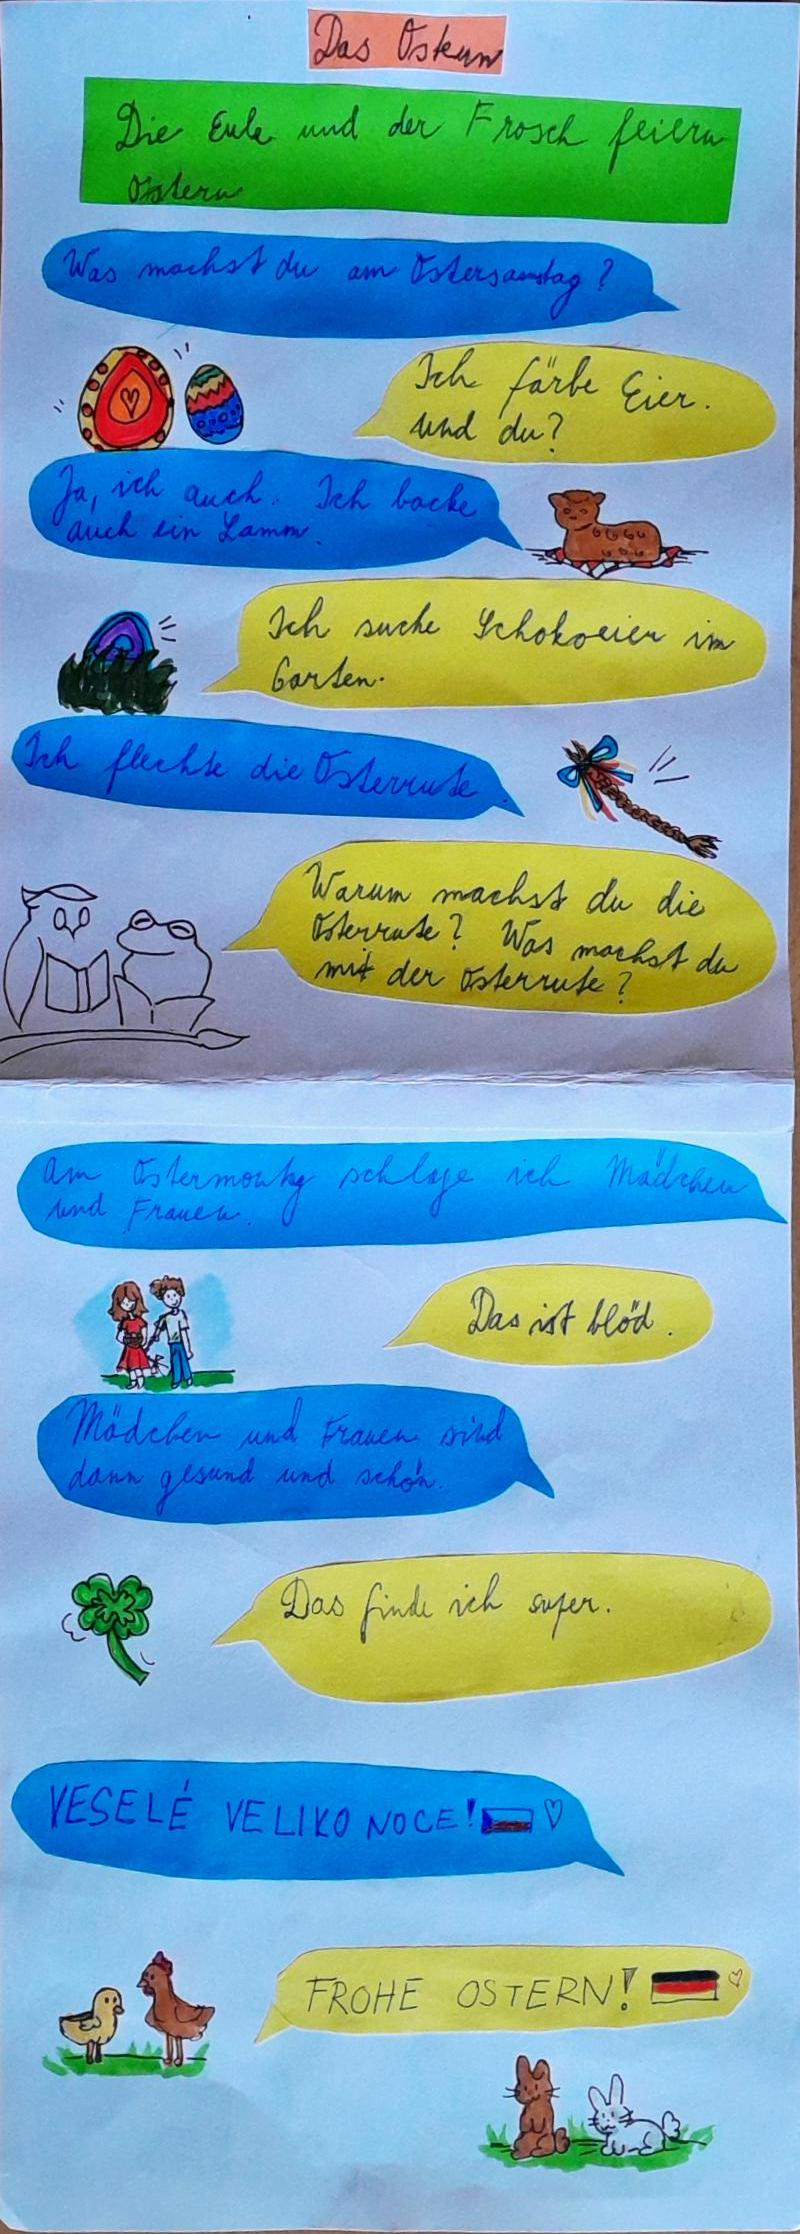 Das Ostern
Die Eule und der Frosch feiern
Ostern
Was machst du am Ostersamstag?
Ich färbe Eier.
und du?
Ja, ich auch. Ich backe
auch ein Lamm.
Ich suche Schokoeier im
Garten.
Ich flechte die Osterrute.
Warum machst du die
Osterrute? Was machst du
mit der Osterrute?
Am Ostermontag schlage ich Mädchen
und Frauen.
Das ist blöd.
Mädchen und Frauen sind
dann gesund und schön.
Das finde ich super.
VESELÉ VELIKONOCE!
FROHE OSTERN!